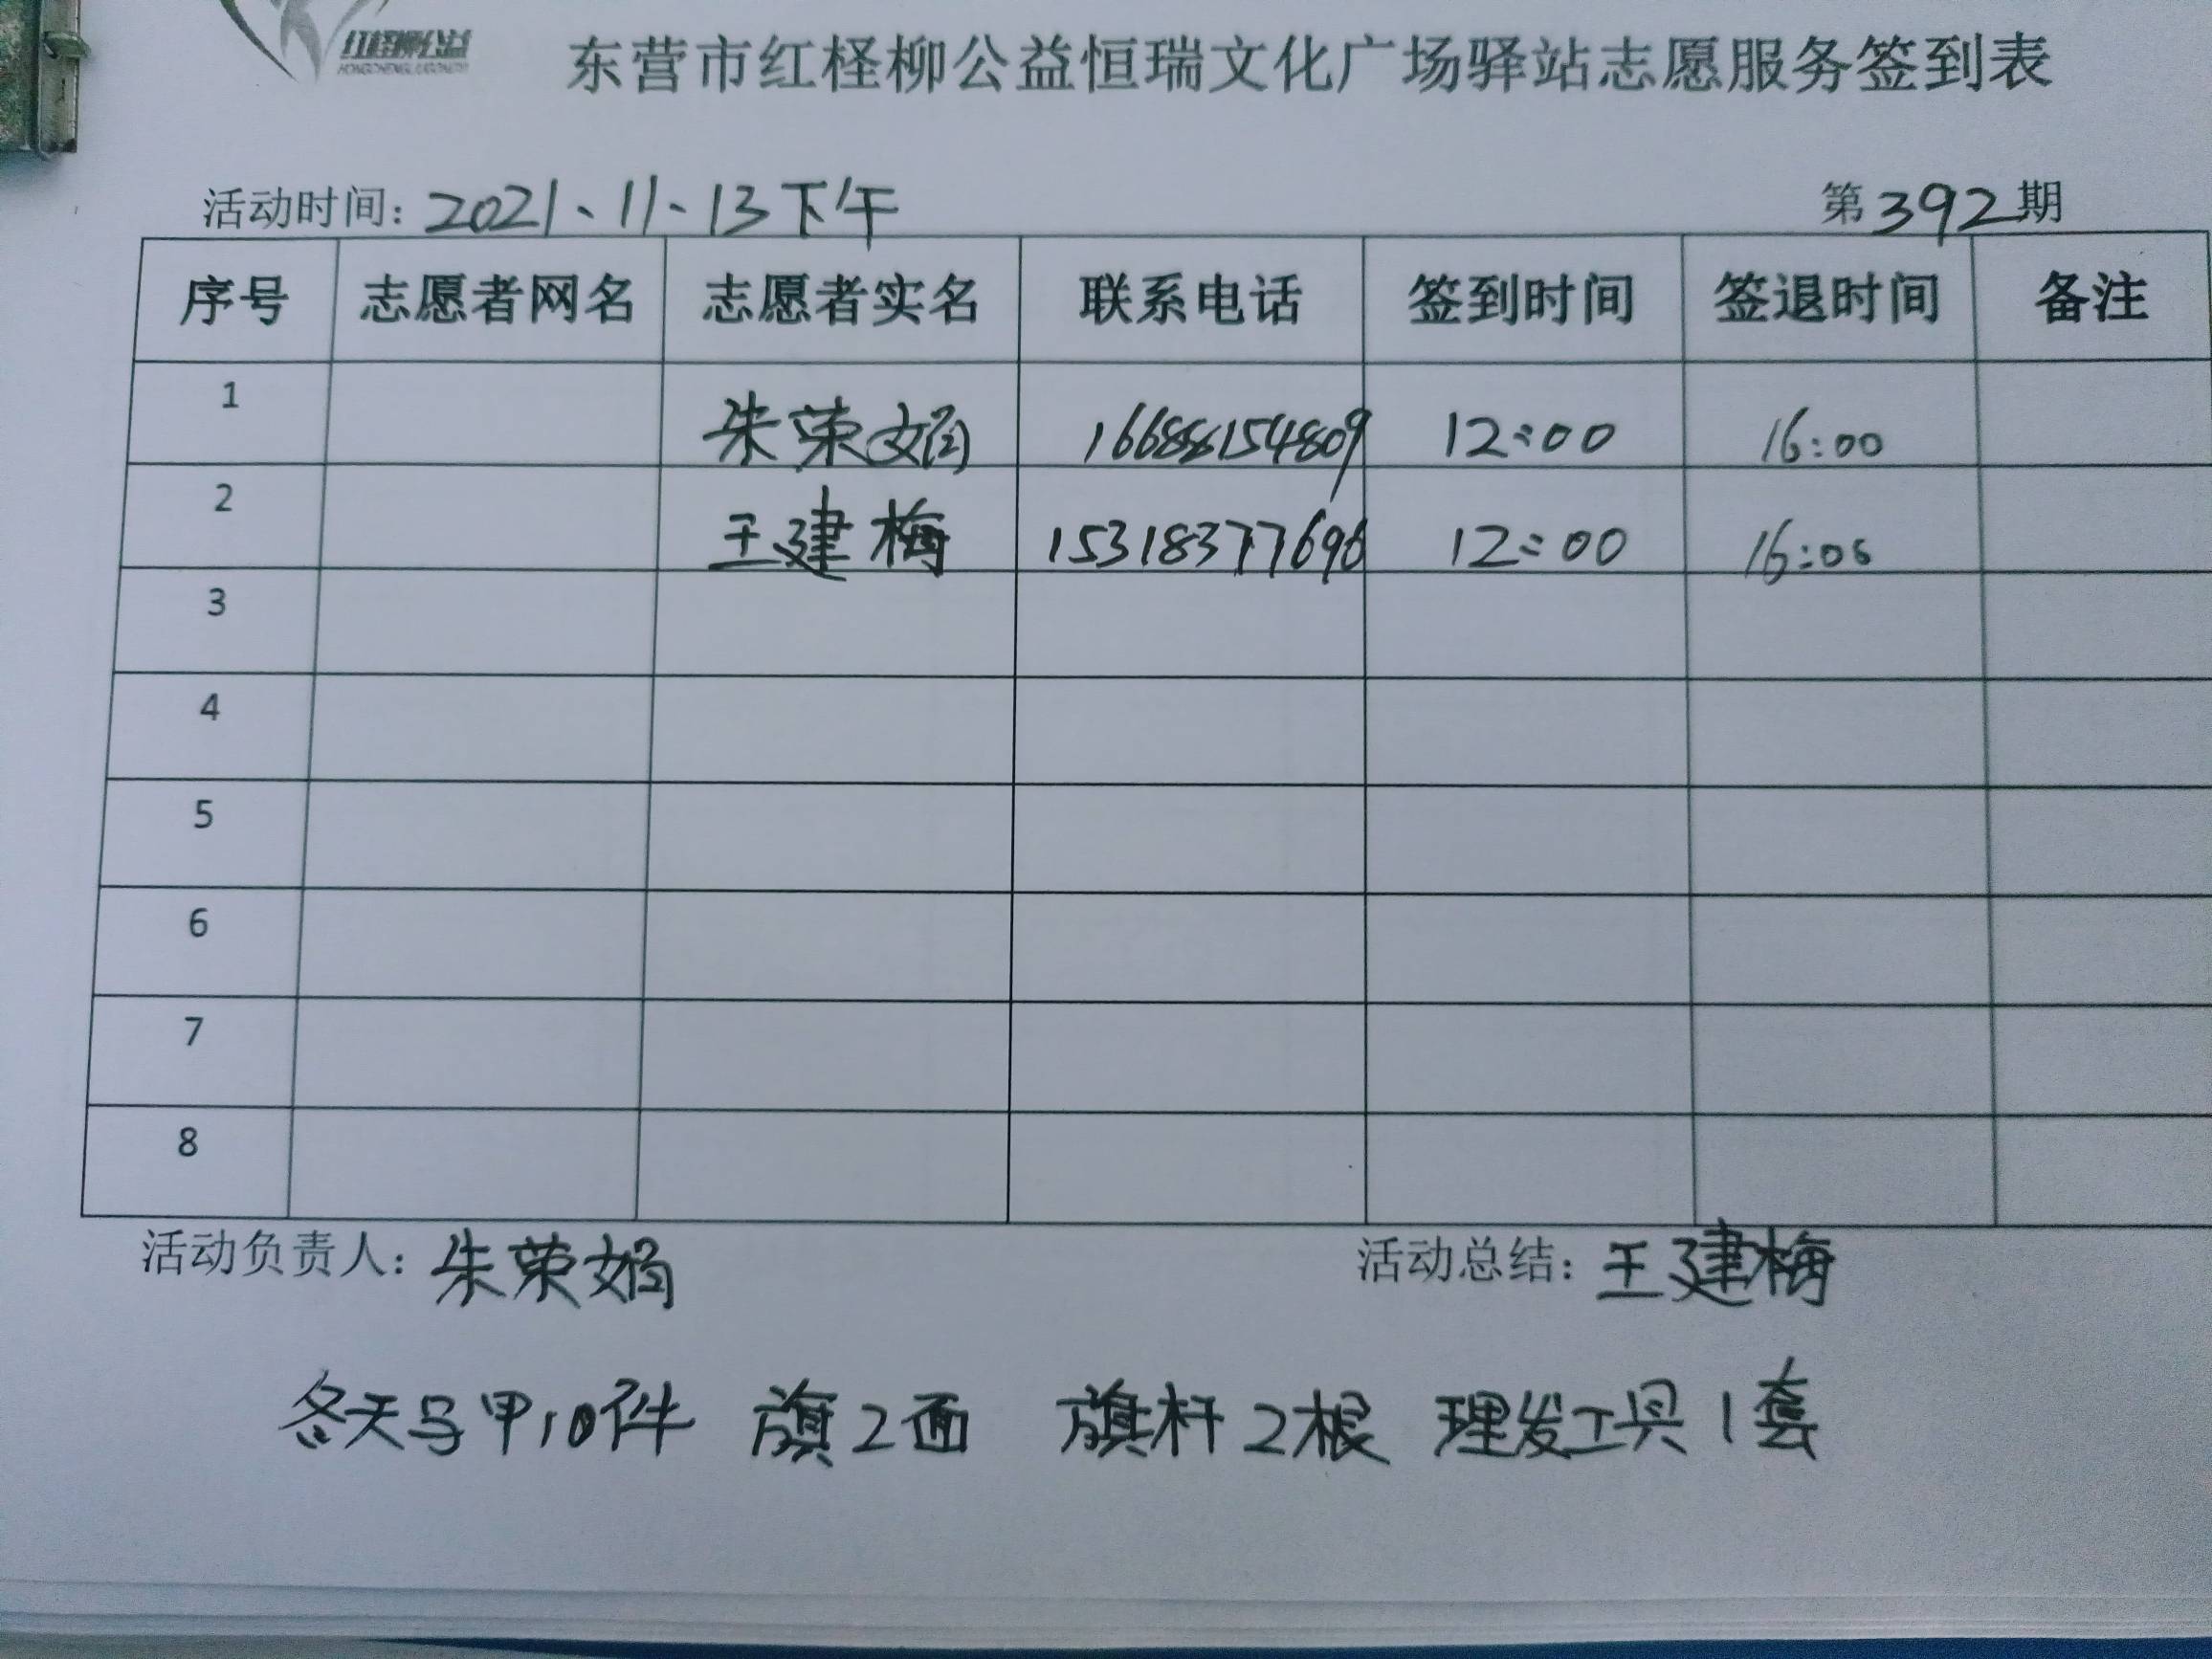 红柽柳公益
东营市红柽柳公益恒瑞文化广场驿站志愿服务签到表
活动时间: 2021、11、13下午 第392期
序号 志愿者网名 志愿者实名 联系电话 签到时间 签退时间 备注
1 朱荣娟 16688154809 12:00 16:00
2 王建梅 15318377696 12:00 16:00
3
4
5
6
7
8
活动负责人: 朱荣娟 活动总结: 王建梅
冬天马甲10件 旗2面 旗杆2根 理发工具1套